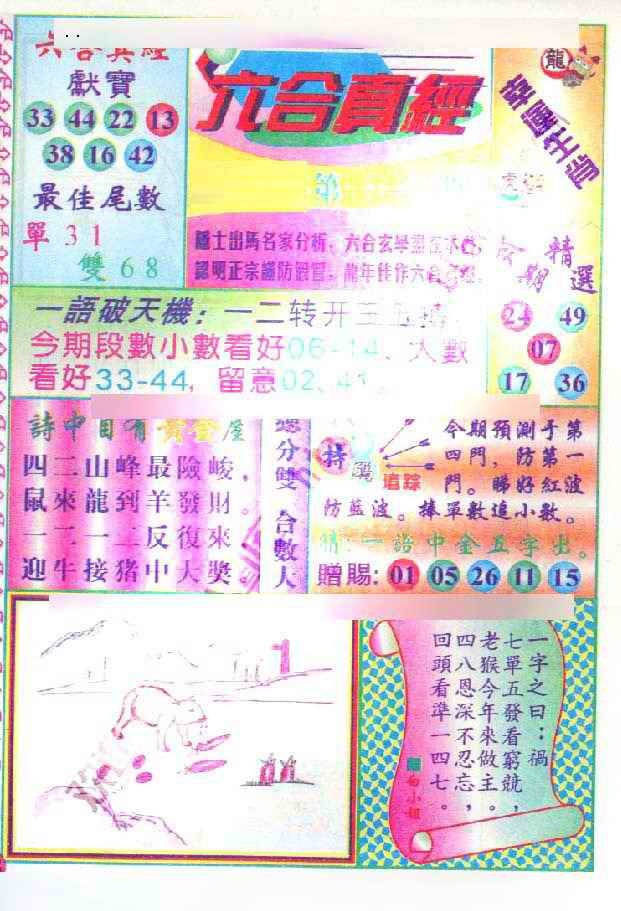 獻寶
33 44 22 13
38 16 42
最佳尾數
單 3 1
雙 6 8
六合真經
龍
隱士出馬名家分析，六合玄學盡在
認明正宗謹防
龍年佳作六合
精選
24 49
07
17 36
一語破天機：一二转开三五
今期段數小數看好06-14、大數
看好33-44，留意02、41。
詩中自有黃金屋
四二山峰最險峻，
鼠來龍到羊發財。
一二一二反復來
迎牛接猪中大獎。
總分雙 合數大
特
追踪
今期預測于第
四門，防第一
門。睇好紅波
防藍波。捧單數追小數。
猜：一語中金五字出。
贈賜: 01 05 26 11 15
1
一字之曰：禍
七單五發看窮競，
老猴今年來做主。
四八恩深不忍忘，
回頭看準一四七。
白小姐